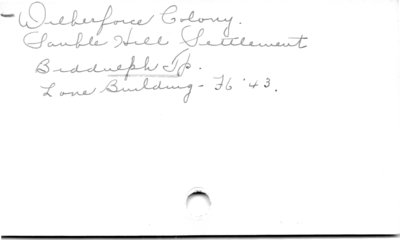 - Wilberforce Colony.
Sauble Hill Settlement
Biddulph Tp.
Lone Building - F6 '43.